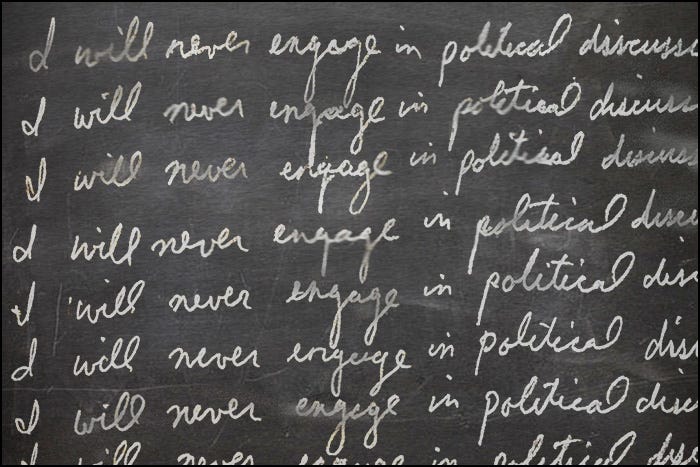 I will never engage in political discussi
I will never engage in political discuss
I will never engage in political discuss
I will never engage in political discu
I will never engage in political dis
I will never engage in political dis
I will never engage in political disc
I will never engage in political disc